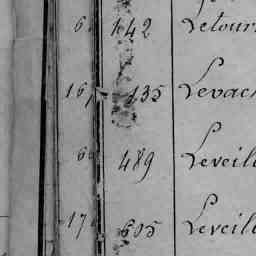 6 142 Letour
167 135 Levac
6 489 Leveil
17 605 Leveil